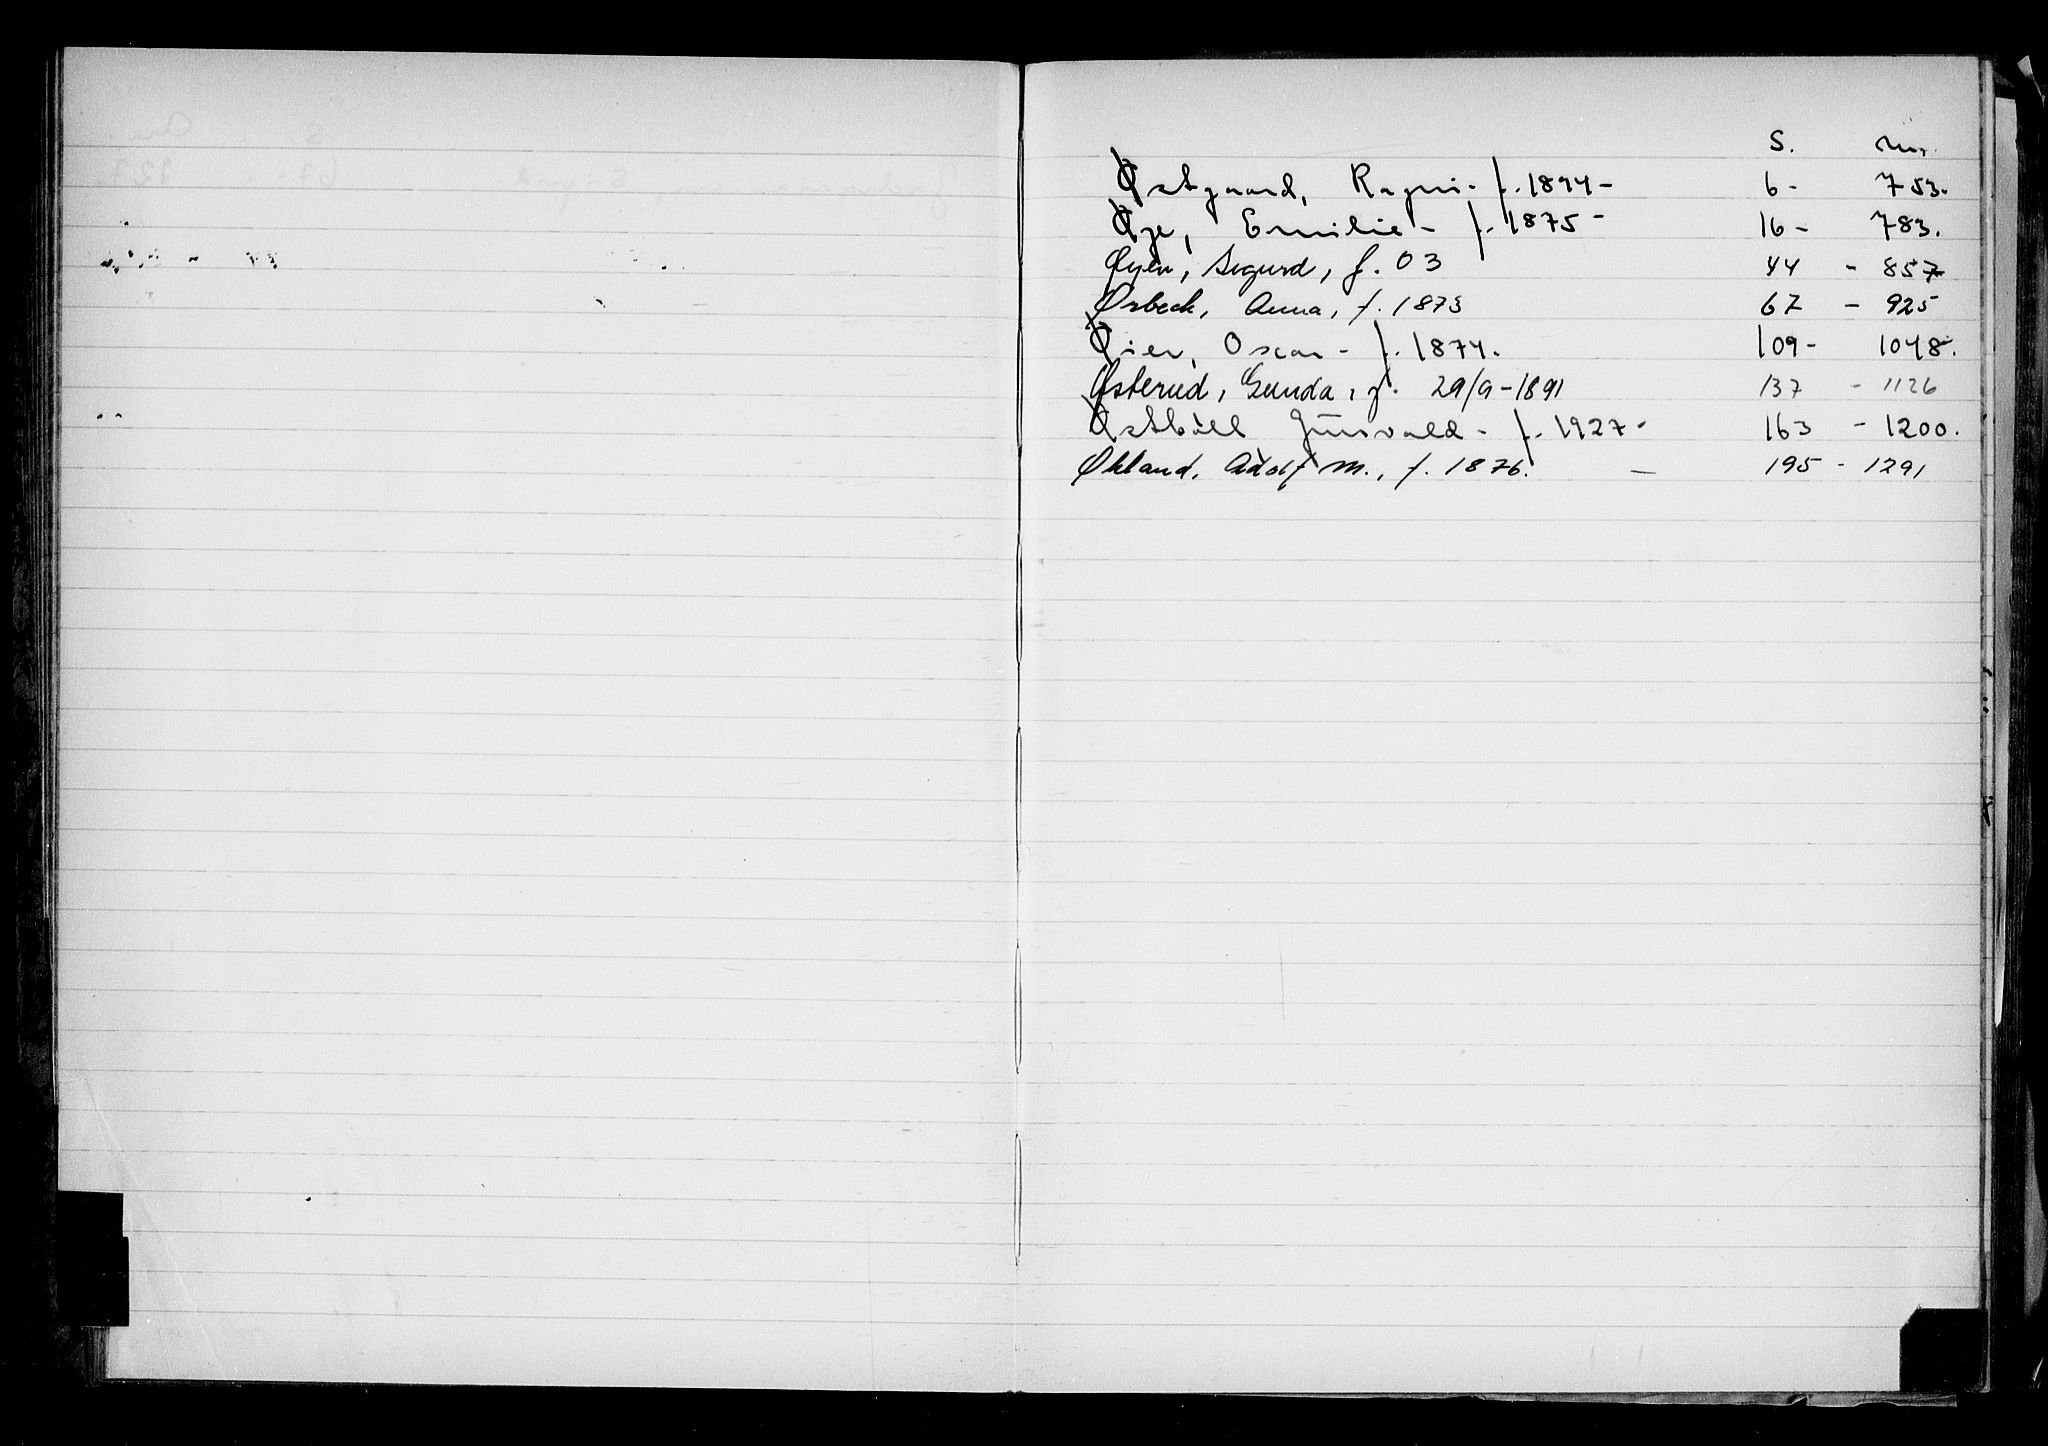 S. Nr.
Østgaard, Ragni - f. 1894 - 6 - 753.
Øye, Emilie - f. 1875 - 16 - 783.
Øyen, Sigurd, f. 03 44 - 857
Ørbeck, Anna, f. 1873 67 - 925
Øien, Oscar - f. 1874. 109 - 1048.
Østerud, Gunda, f. 29/9-1891 137 - 1126
Østbøll Gunvald - f. 1927 - 163 - 1200.
Økland, Adolf M., f. 1876. - 195 - 1291